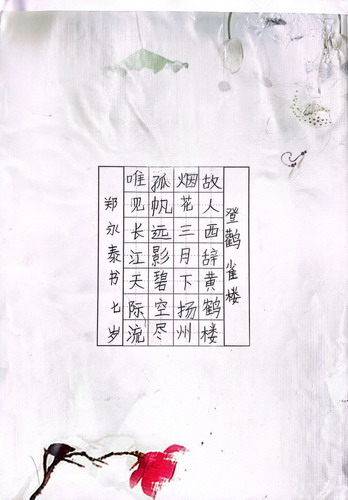 登鹳雀楼
故人西辞黄鹤楼
烟花三月下扬州
孤帆远影碧空尽
唯见长江天际流
郑永泰书 七岁